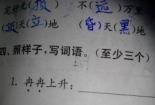 不(远)万里
(顶)天(立)地 (昏)天(黑)地
四、照样子,写词语。(至少三个)
1. 冉冉上升: